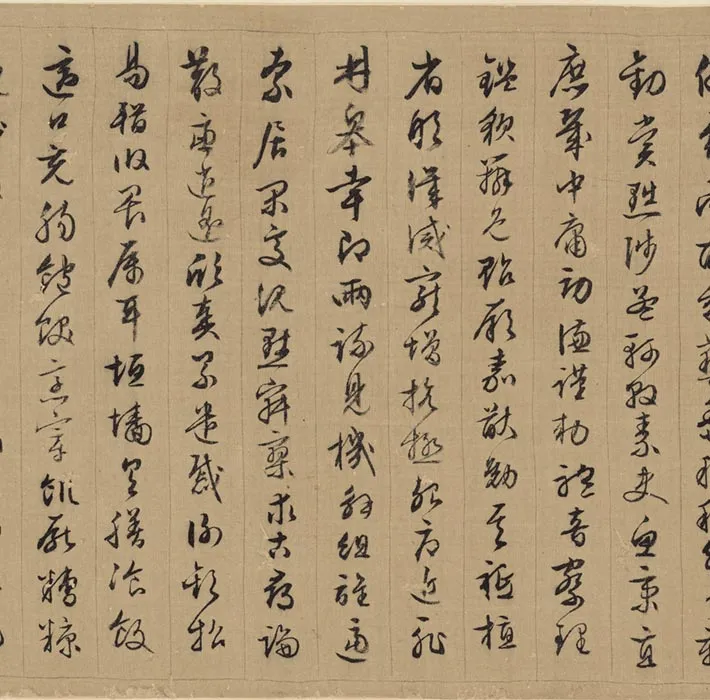 俶載南畝我藝黍稷稅熟貢新
勸賞黜陟孟軻敦素史魚秉直
庶幾中庸勞謙謹敕聆音察理
鑑貌辨色貽厥嘉猷勉其祗植
省躬譏誡寵增抗極殆辱近恥
林皋幸即兩疏見機解組誰逼
索居閑處沉默寂寥求古尋論
散慮逍遙欣奏累遣慼謝歡招
易輶攸畏屬耳垣墻具膳飡飯
適口充腸飽飫烹宰飢厭糟糠